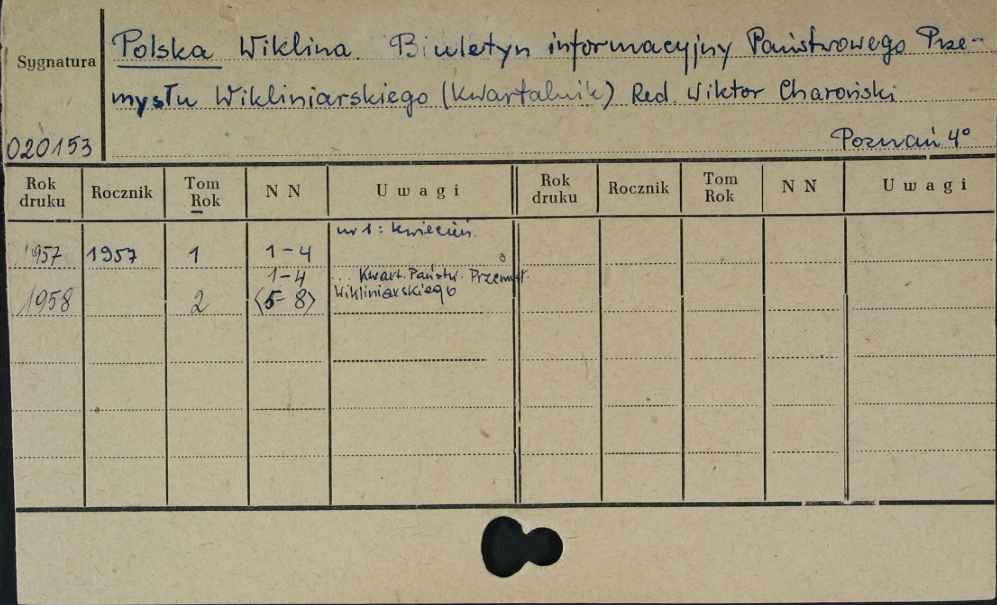 Polska Wiklina. Biuletyn informacyjny Państwowego Prze-
Sygnatura
mysłu Wikliniarskiego (Kwartalnik) Red. Wiktor Charoński
020153 Poznań 4°
Rok druku Rocznik Tom Rok N N Uwagi Rok druku Rocznik Tom Rok N N Uwagi
nr 1: kwiecień.
1957 1957 1 1-4
1-4 ... Kwart. Państw. Przemysł.
1958 2 <5-8> Wikliniarskiego